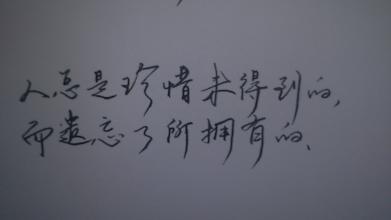 人总是珍惜未得到的,
而遗忘了所拥有的.